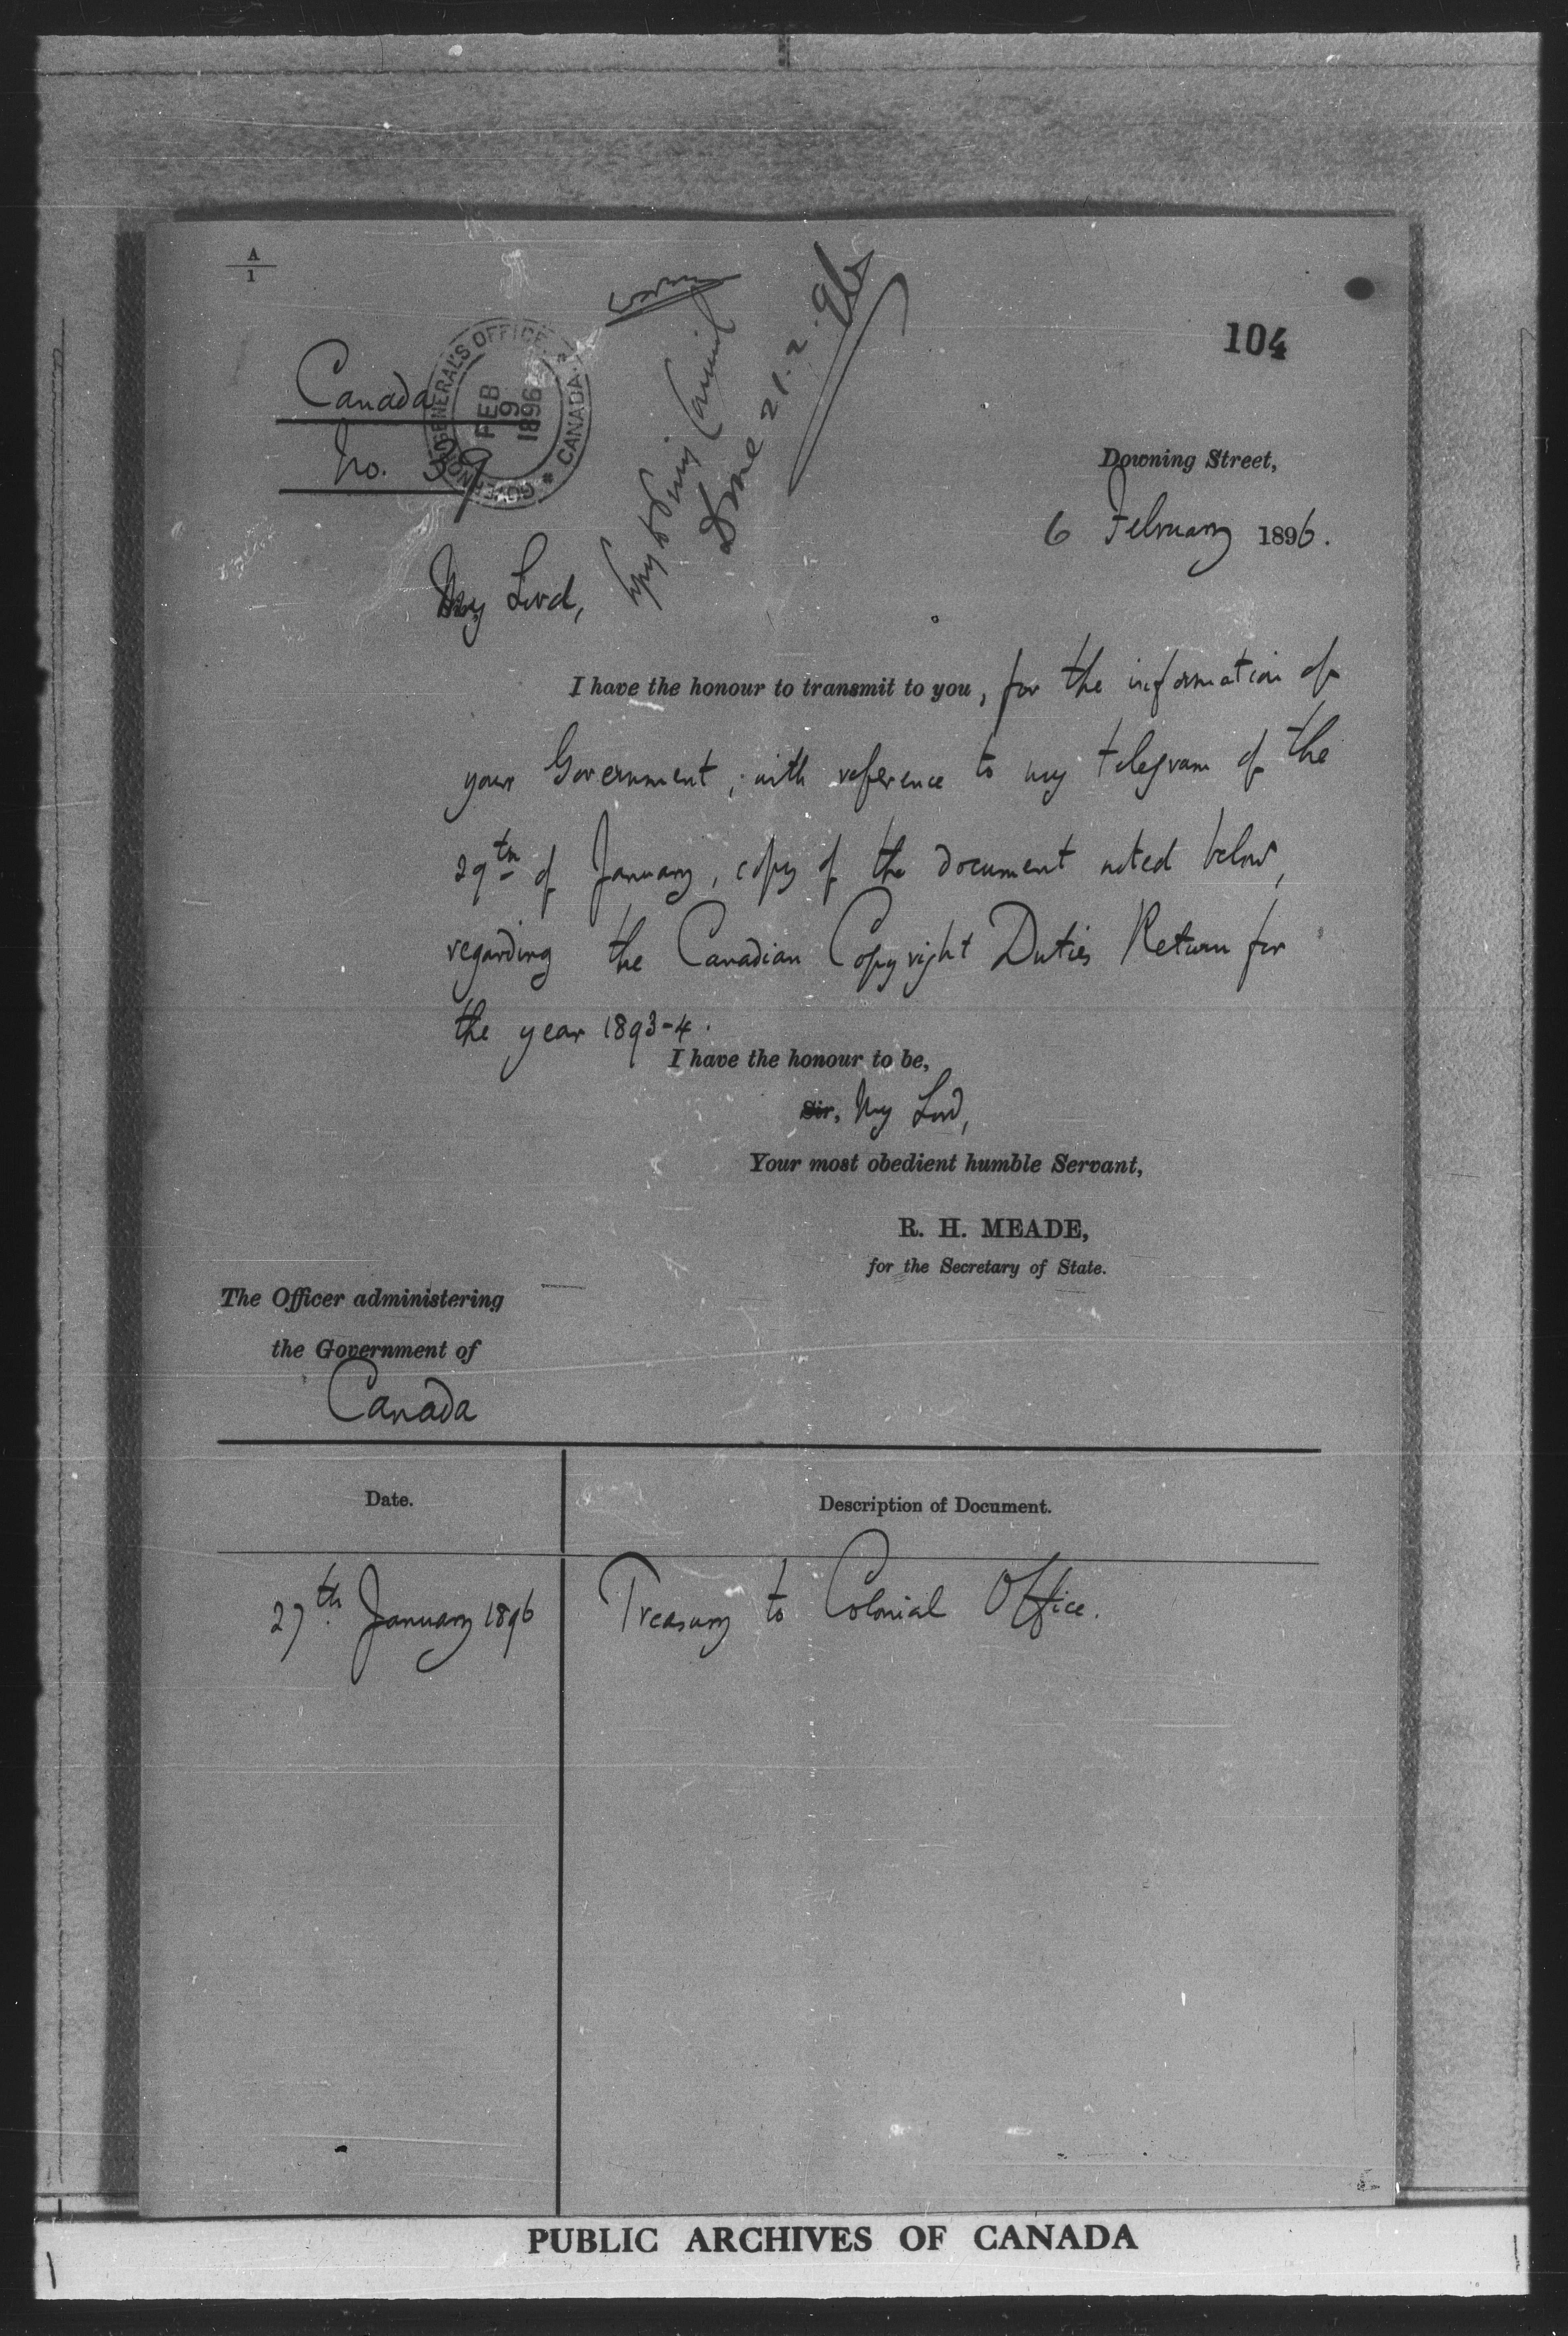 A
1
104
Canada
No. 39
GOVERNOR GENERAL'S OFFICE
FEB
19
1896
* CANADA *
Copy to Privy Council
Done 21.2.96
Downing Street,
6 February 1896.
My Lord,
I have the honour to transmit to you, for the information of
your Government, with reference to my telegram of the
29th of January, copy of the document noted below,
regarding the Canadian Copyright Duties Return for
the year 1893-4.
I have the honour to be,
Sir, My Lord,
Your most obedient humble Servant,
R. H. MEADE,
for the Secretary of State.
The Officer administering
the Government of
Canada
Date.
Description of Document.
27th January 1896
Treasury to Colonial Office.
PUBLIC ARCHIVES OF CANADA